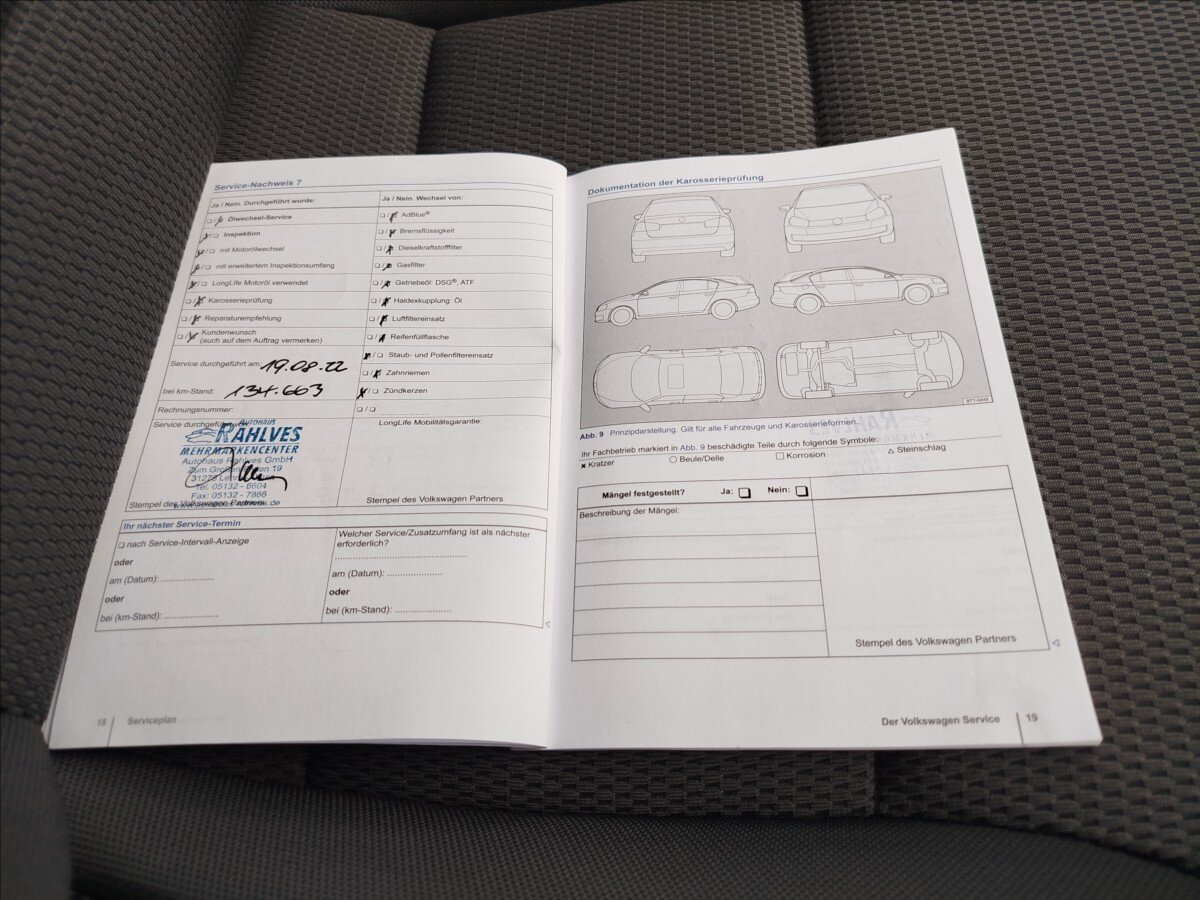 Service-Nachweis 7
Ja / Nein. Durchgeführt wurde:
Ölwechsel-Service
Inspektion
mit Motorölwechsel
mit erweitertem Inspektionsumfang
LongLife Motoröl verwendet
Karosserieprüfung
Reparaturempfehlung
Kundenwunsch
(auch auf dem Auftrag vermerken)
Service durchgeführt am: 19.08.22
bei km-Stand: 134.663
Rechnungsnummer:
Service durchgeführt
AUTOHAUS
RAHLVES
MEHRMARKENCENTER
Autohaus Rahlves GmbH
Zum Großen 19
31275
Tel. 05132 - 6604
Fax: 05132 - 7866
Stempel des Volkswagen Partners
Ja / Nein. Wechsel von:
AdBlue®
Bremsflüssigkeit
Dieselkraftstofffilter
Gasfilter
Getriebeöl: DSG®, ATF
Haldexkupplung: Öl
Luftfiltereinsatz
Reifenfüllflasche
Staub- und Pollenfiltereinsatz
Zahnriemen
Zündkerzen
LongLife Mobilitätsgarantie:
Stempel des Volkswagen Partners
Ihr nächster Service-Termin
nach Service-Intervall-Anzeige
oder
am (Datum): ....................
oder
bei (km-Stand): ....................
Welcher Service/Zusatzumfang ist als nächster
erforderlich?
am (Datum): ....................
oder
bei (km-Stand): ....................
18 Serviceplan
Dokumentation der Karosserieprüfung
BTT-0449
Abb. 9 Prinzipdarstellung. Gilt für alle Fahrzeuge und Karosserieformen.
Ihr Fachbetrieb markiert in Abb. 9 beschädigte Teile durch folgende Symbole:
Kratzer Beule/Delle Korrosion Steinschlag
Mängel festgestellt? Ja: Nein:
Beschreibung der Mängel:
Stempel des Volkswagen Partners
Der Volkswagen Service 19